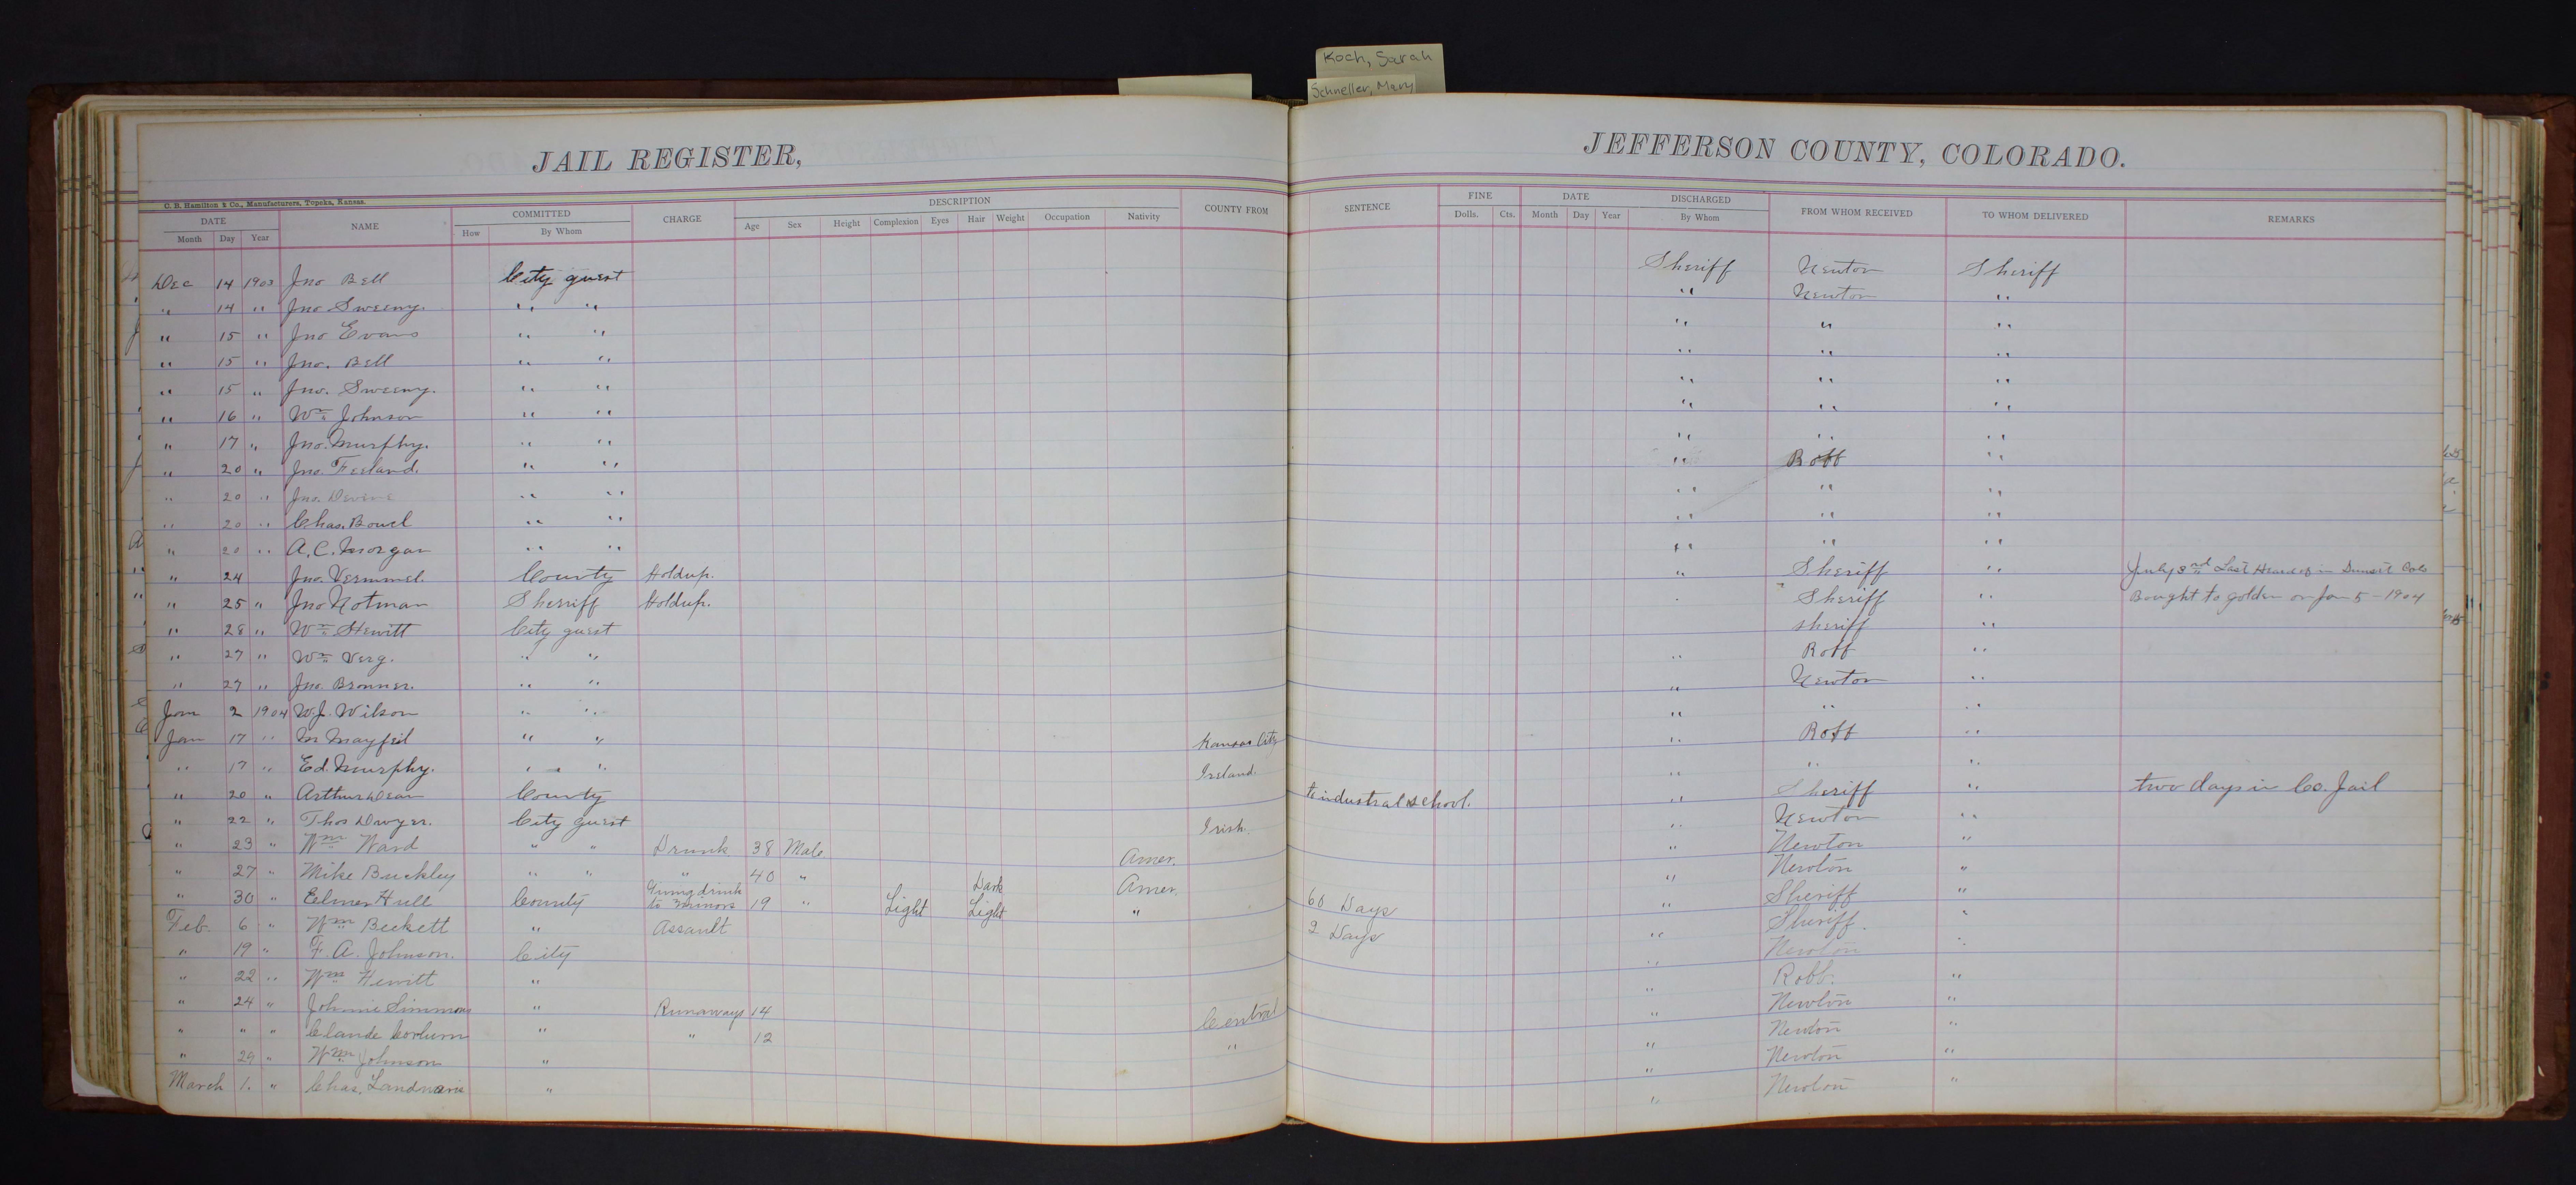 Koch, Sarah
Schneller, Mary
JAIL REGISTER,
C. B. Hamilton & Co., Manufacturers, Topeka, Kansas.
DATE NAME COMMITTED CHARGE DESCRIPTION COUNTY FROM
Month Day Year How By Whom Age Sex Height Complexion Eyes Hair Weight Occupation Nativity
Dec 14 1903 Jno Bell City guest
" 14 " Jno Sweeny. " "
" 15 " Jno Evans " "
" 15 " Jno. Bell " "
" 15 " Jno. Sweeny. " "
" 16 " Wm Johnson " "
" 17 " Jno. Murphy. " "
" 20 " Jno. Ferland. " "
" 20 " Jno. Devene " "
" 20 " Chas. Bowel " "
" 20 " A. C. Morgan " "
" 24 Jno. Vermmel. County Holdup.
" 25 " Jno Notman Sheriff Holdup.
" 28 " Wm Hewitt City guest
" 27 " Wm Verg. " "
" 27 " Jno. Bronner. " "
Jan 2 1904 W. J. Wilson " "
Jan 17 " M Mayfiel " " Kansas City
" 17 " Ed. Murphy. " " Ireland.
" 20 " Arthur Dean County
" 22 " Thos Dwyer. City guest Irish.
" 23 " Wm Ward " " Drunk 38 Male Amer.
" 27 " Mike Buckley " " " 40 " Dark Amer.
" 30 " Elmer Hull County Giving drink to minors 19 " Light Light "
Feb. 6 " Wm Beckett " Assault
" 19 " F. A. Johnson. City
" 22 " Wm Hewitt "
" 24 " Johnnie Simmons " Runaways 14 Central
" " " Claude Corburn " " 12 "
" 29 " Wm Johnson "
March 1. " Chas. "
JEFFERSON COUNTY, COLORADO.
SENTENCE FINE DATE DISCHARGED FROM WHOM RECEIVED TO WHOM DELIVERED REMARKS
Dolls. Cts. Month Day Year By Whom
Sheriff Newton Sheriff
" Newton "
" " "
" " "
" " "
" " "
" " "
" Robb "
" " "
" " "
" " "
" Sheriff " July 3rd Last Heard of in Sunset Colo
Sheriff " Bought to Golden on Jan 5 - 1904
sheriff "
" Robb "
" Newton "
" " "
" Robb "
" " "
to industral school. " Sheriff " two days in Co. Jail
" Newton "
" Newton "
" Newton "
60 Days " Sheriff "
2 Days " Sheriff. "
" Newton "
" Robb. "
" Newton "
" Newton "
" Newton "
" Newton "